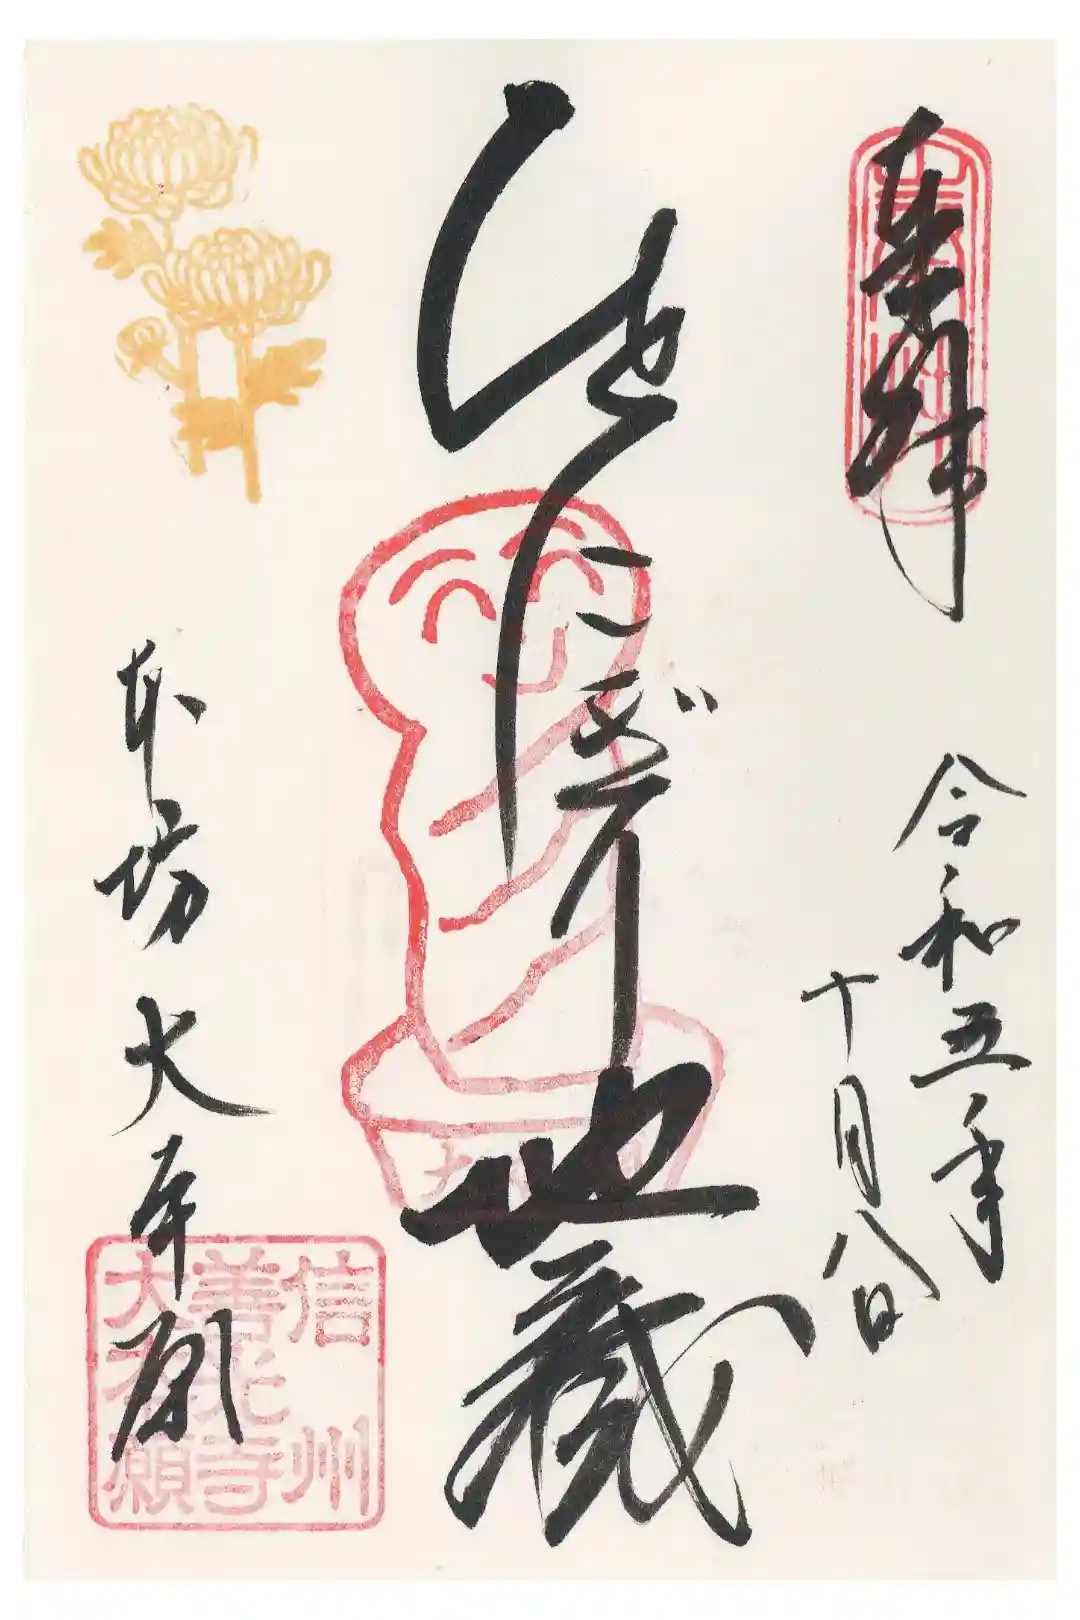 奉拝
令和五年
十月八日
にぎり地蔵
本坊 大本願
信州
善光寺
大本願